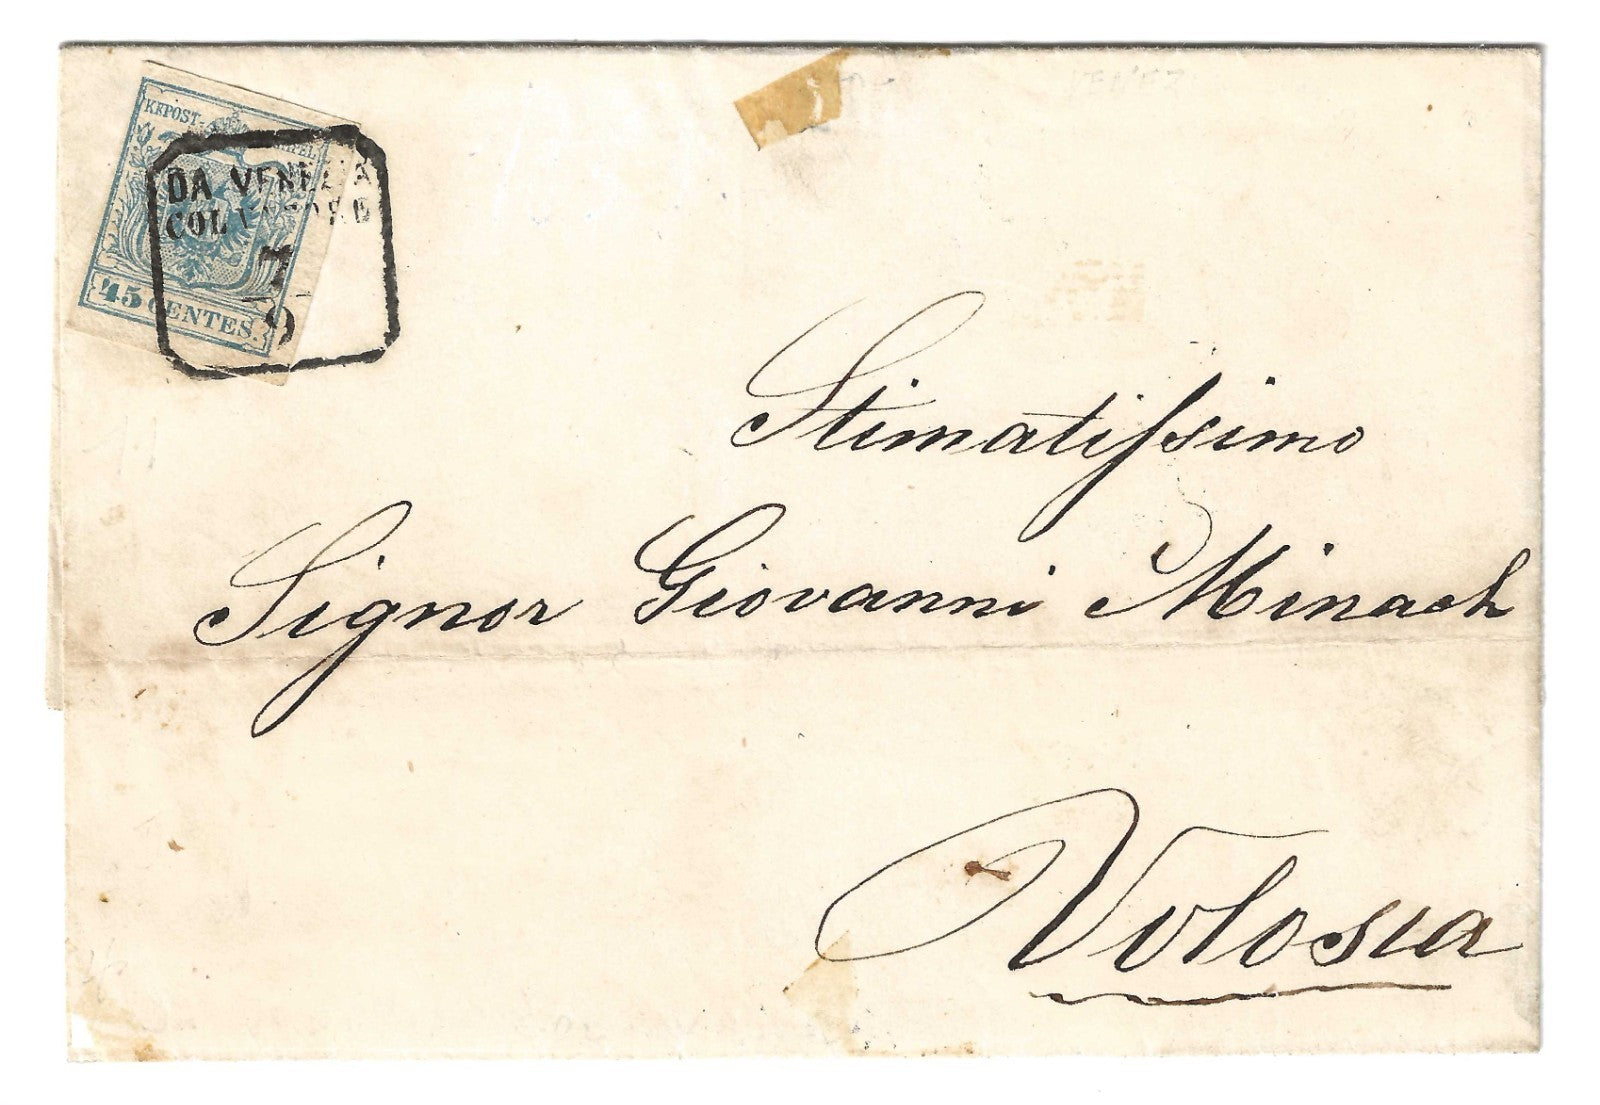 KKPOST-
DA VENEZIA
COL VAPORE
7
9
45 CENTES.
Stimatissimo
Signor Giovanni Minach
Volosca